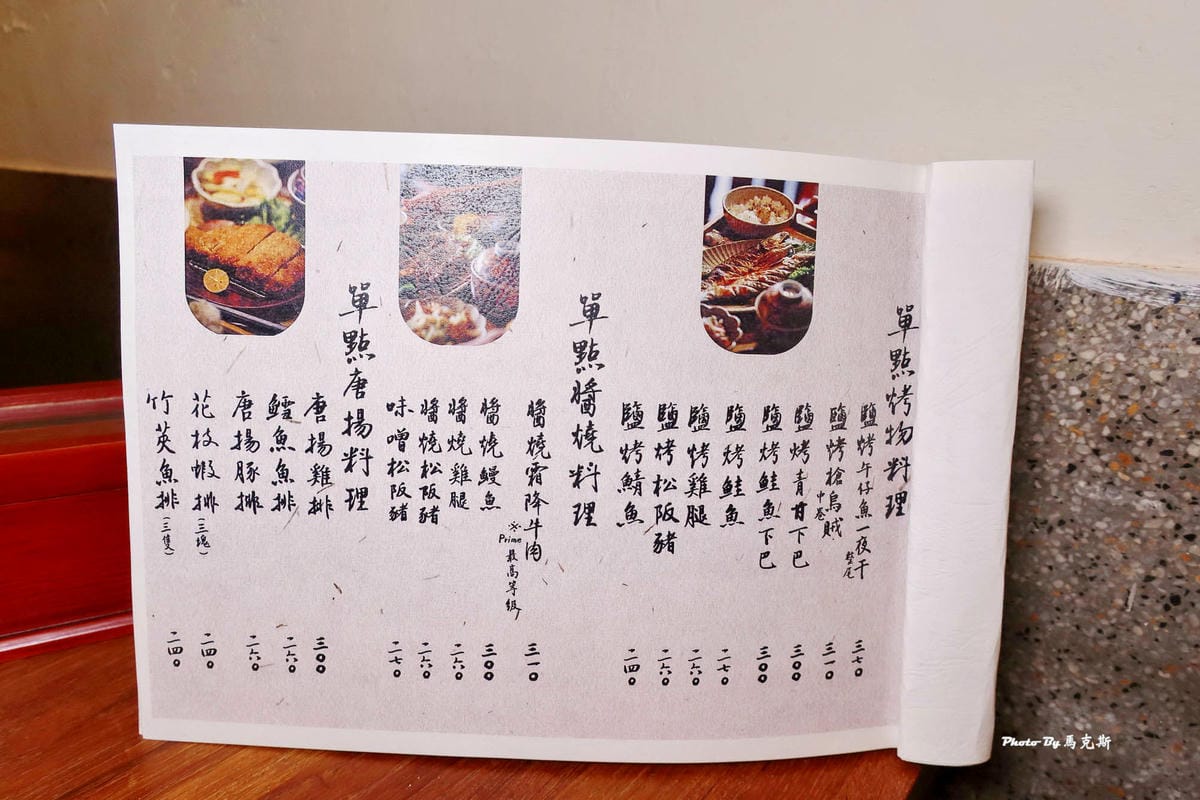 單點烤物料理
鹽烤午仔魚一夜干 整尾 三七０
鹽烤槍烏賊 中卷 三一０
鹽烤青甘下巴 三００
鹽烤鮭魚下巴 三００
鹽烤鮭魚 二七０
鹽烤雞腿 二六０
鹽烤松阪豬 二六０
鹽烤鯖魚 二四０
單點醬燒料理
醬燒霜降牛肉 三一０
※Prime最高等級
醬燒鰻魚 三００
醬燒雞腿 二六０
醬燒松阪豬 二六０
味噌松阪豬 二七０
單點唐揚料理
唐揚雞排 三００
鱈魚魚排 二六０
唐揚豚排 二六０
花枝蝦排(三塊) 二四０
竹莢魚排(三隻) 二四０
Photo By 馬克斯